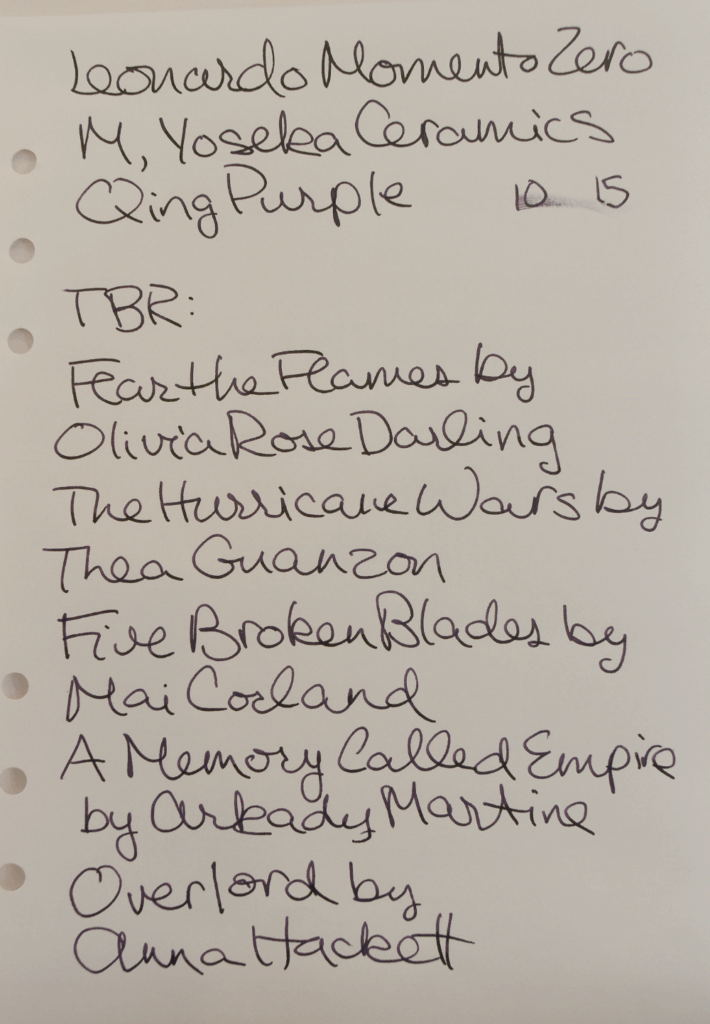 Leonardo Momento Zero
M, Yoseka Ceramics
Qing Purple 10 15
TBR:
Fear the Flames by
Olivia Rose Darling
The Hurricane Wars by
Thea Guanzon
Five Broken Blades by
Mai Corland
A Memory Called Empire
by Arkady Martine
Overlord by
Anna Hackett